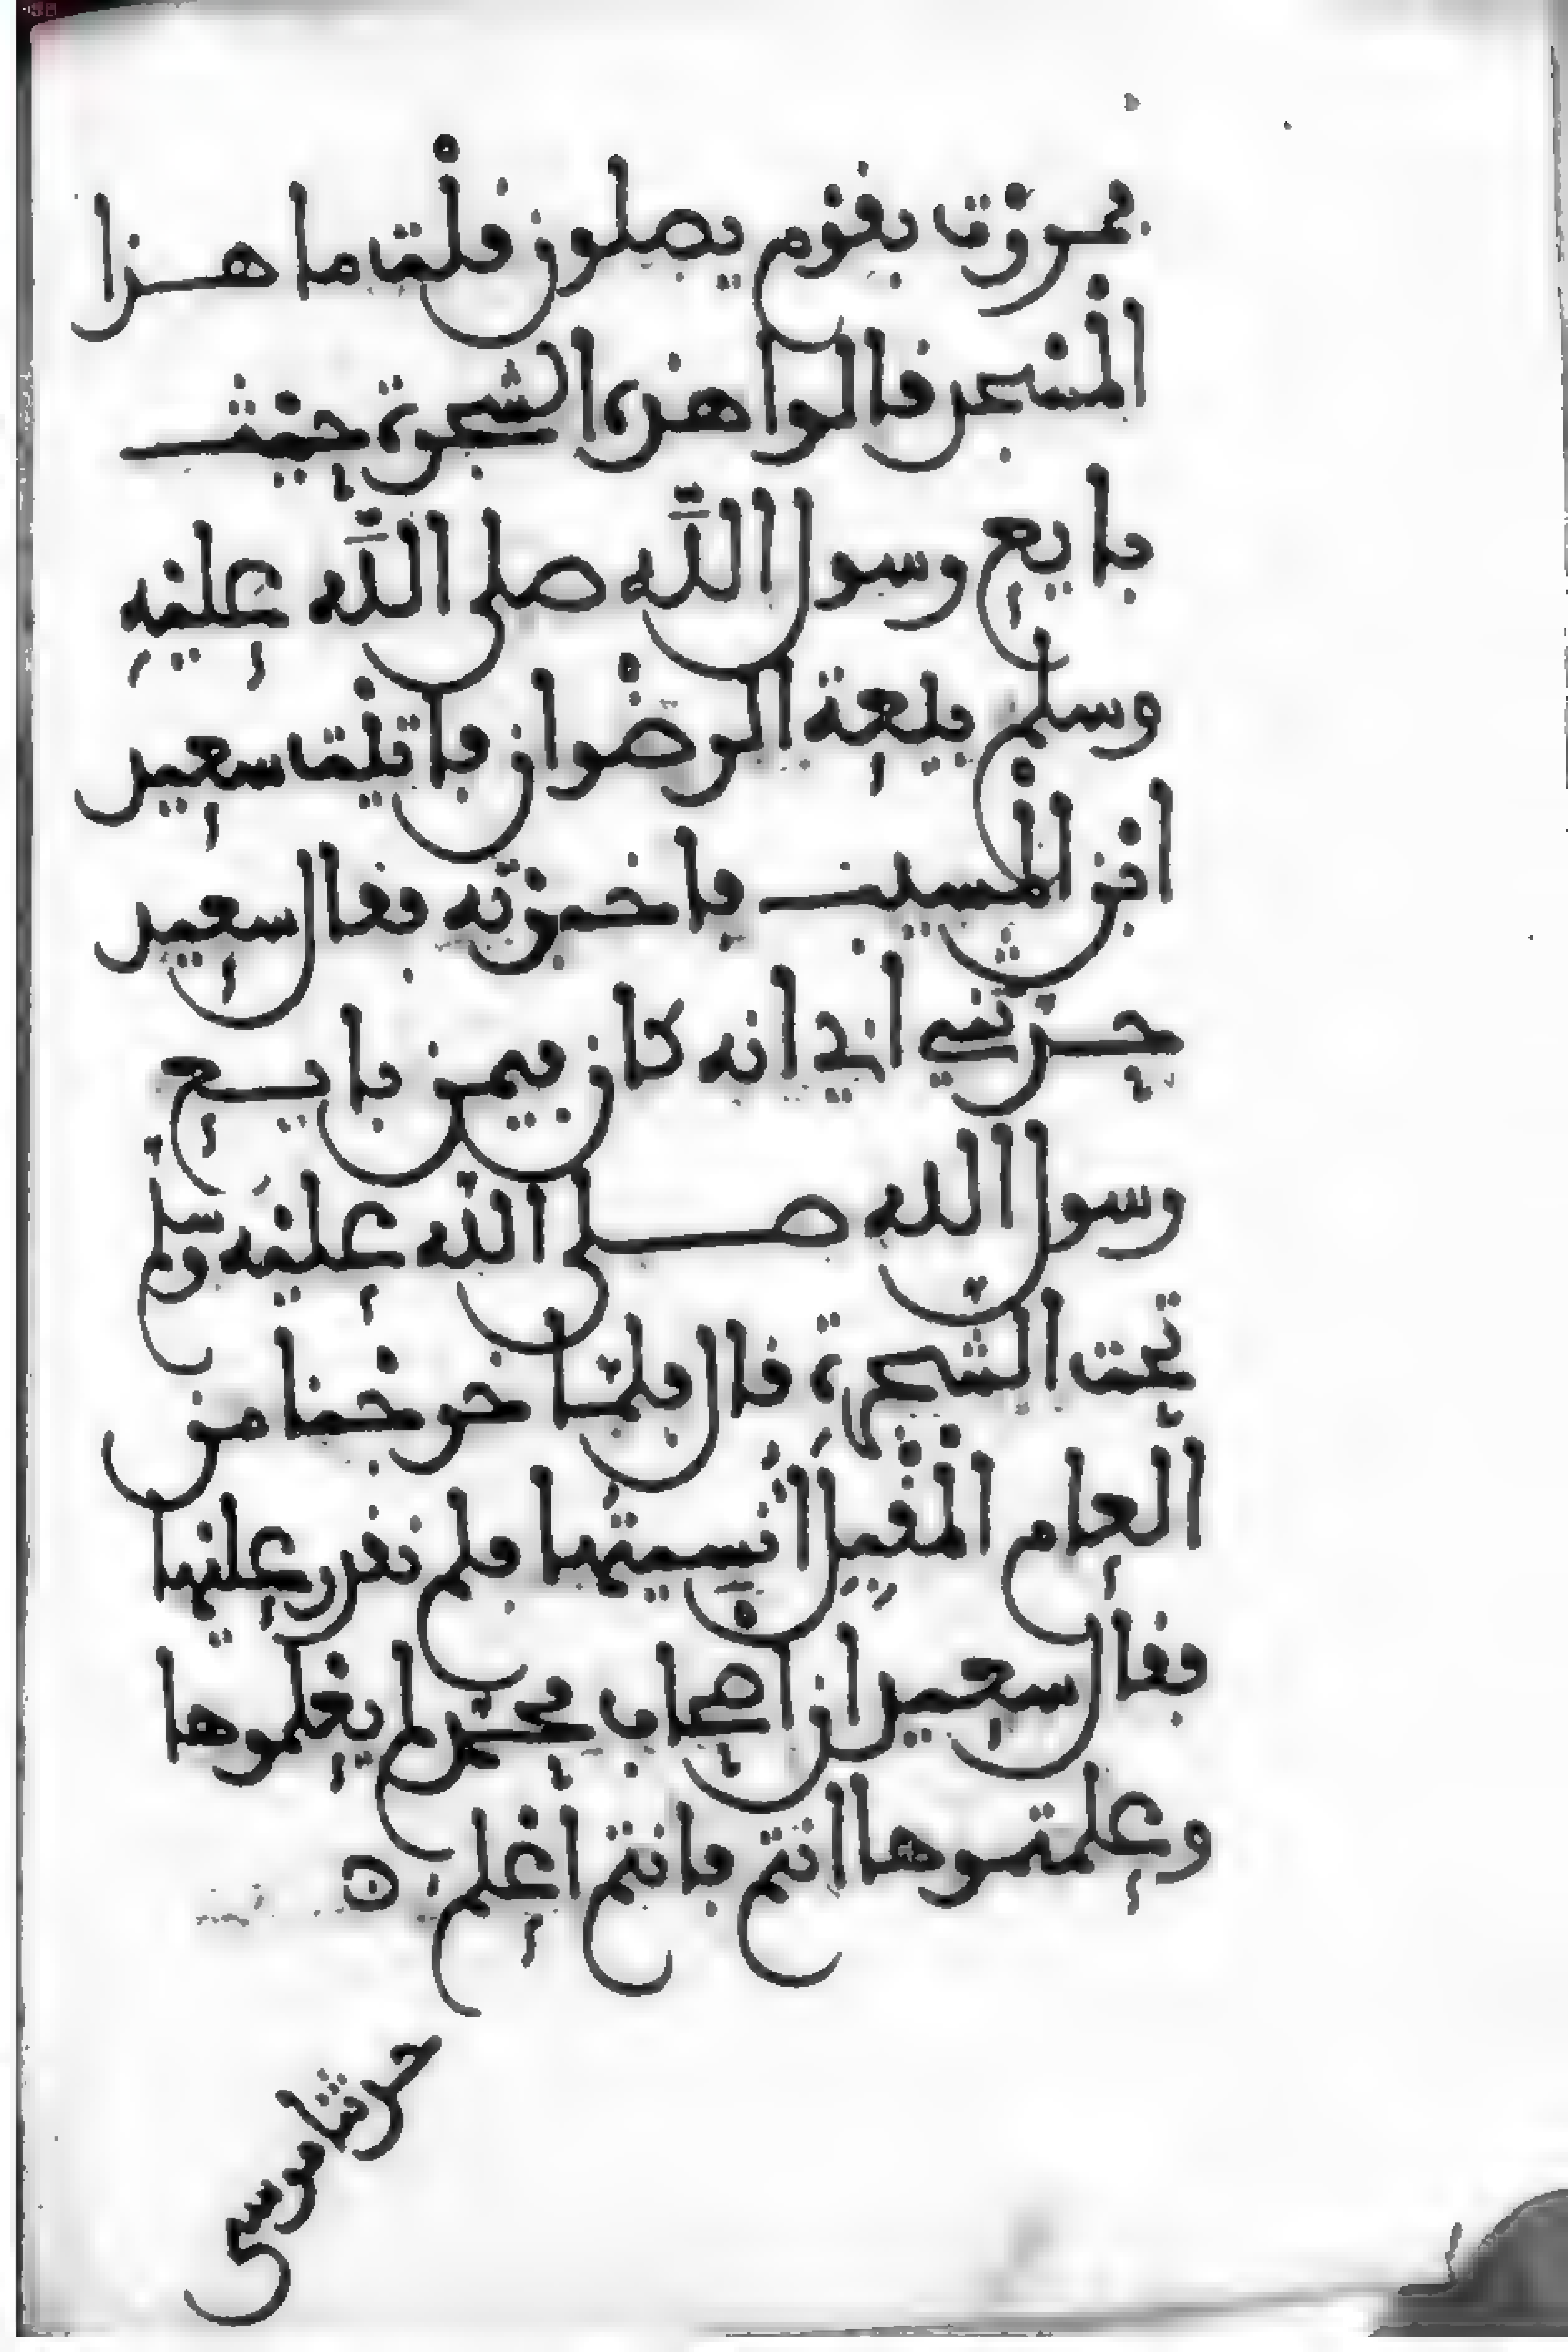 فمررت بقوم يصلون قلت ما هذا
المسجد قالوا هذه الشجرة حيث
بايع رسول الله صلى الله عليه
وسلم بيعة الرضوان فاتيت سعيد
ابن المسيب فاخبرته فقال سعيد
حدثني ابي انه كان فيمن بايع
رسول الله صلى الله عليه وسلم
تحت الشجرة قال فلما خرجنا من
العام المقبل انسيتها فلم نقدر عليها
فقال سعيد ان اصحاب محمد لم يعلموها
وعلمتموها انتم فانتم اعلم
حدثنا موسى